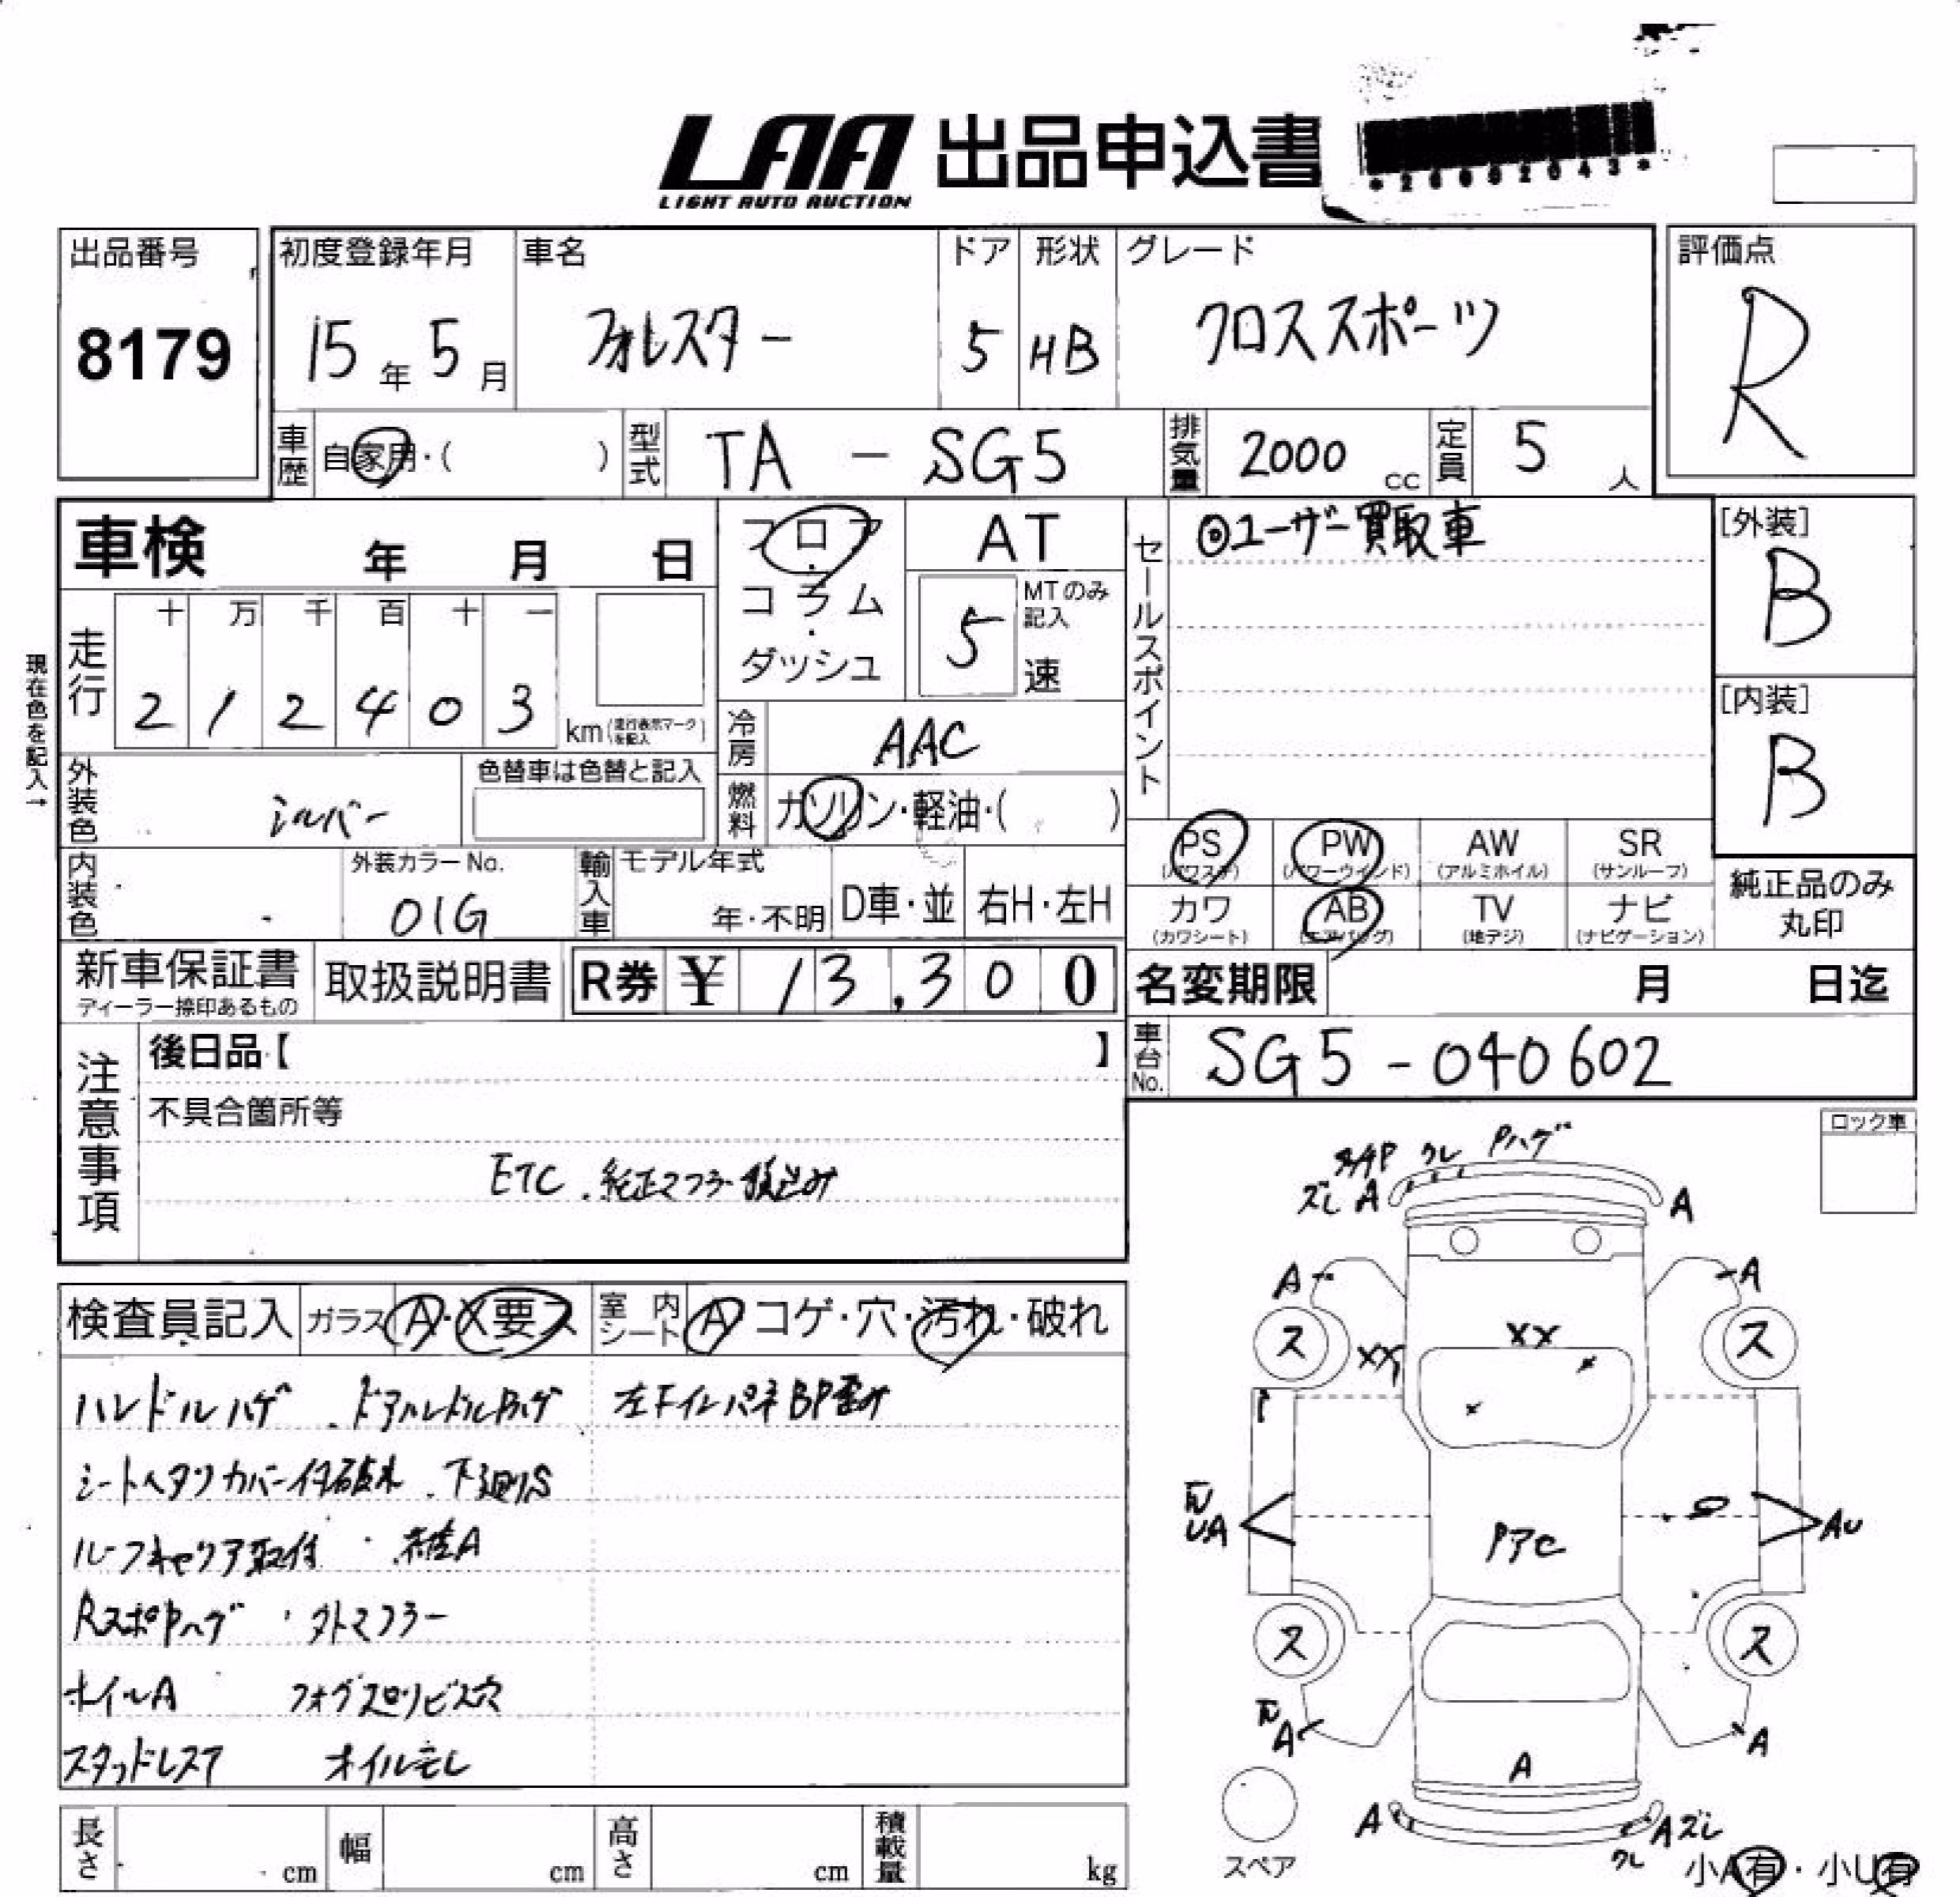 LAA 出品申込書
LIGHT AUTO AUCTION
*26092043*
出品番号
8179
初度登録年月 車名 ドア 形状 グレード
15年 5月 フォレスター 5 HB クロススポーツ
評価点
R
車歴 自家用・( ) 型式 TA - SG5 排気量 2000 cc 定員 5 人
車検 年 月 日
フロア・コラム・ダッシュ
AT
5 MTのみ記入 速
セールスポイント
◎ユーザー買取車
[外装]
B
[内装]
B
現在色を記入→
走行 十 万 千 百 十 一
2 1 2 4 0 3 km(走行表示マークを記入)
冷房 AAC
外装色 シルバー 色替車は色替と記入
燃料 ガソリン・軽油・( )
内装色 外装カラーNo. 01G
輸入車 モデル年式 年・不明 D車・並 右H・左H
PS (パワステ) PW (パワーウインド) AW (アルミホイル) SR (サンルーフ)
カワ (カワシート) AB (エアバッグ) TV (地デジ) ナビ (ナビゲーション)
純正品のみ丸印
新車保証書 ディーラー捺印あるもの 取扱説明書 R券 ¥ 13,300
名変期限 月 日迄
車台No. SG5-040602
注意事項
後日品【 】
不具合箇所等
ETC . 純正マフラー積込み
ロック車
検査員記入 ガラス A・X要ス 室内シート A コゲ・穴・汚れ・破れ
ハンドルハゲ . ドアハンドルPハゲ 左Fインパネ BP歪み
シートヘタリ カバー付破れ . 下廻りS
ルーフキャリア取付
RスポPハゲ ・ 外マフラー
ホイルA
スタッドレス オイルモレ
ワレ Pハゲ
ズレ A A
A A
ス XX ス
XX
UA PアC AU
ス ス
A A
A
A Aズレ
ワレ
スペア
小A有・小U有
長さ cm 幅 cm 高さ cm 積載量 kg